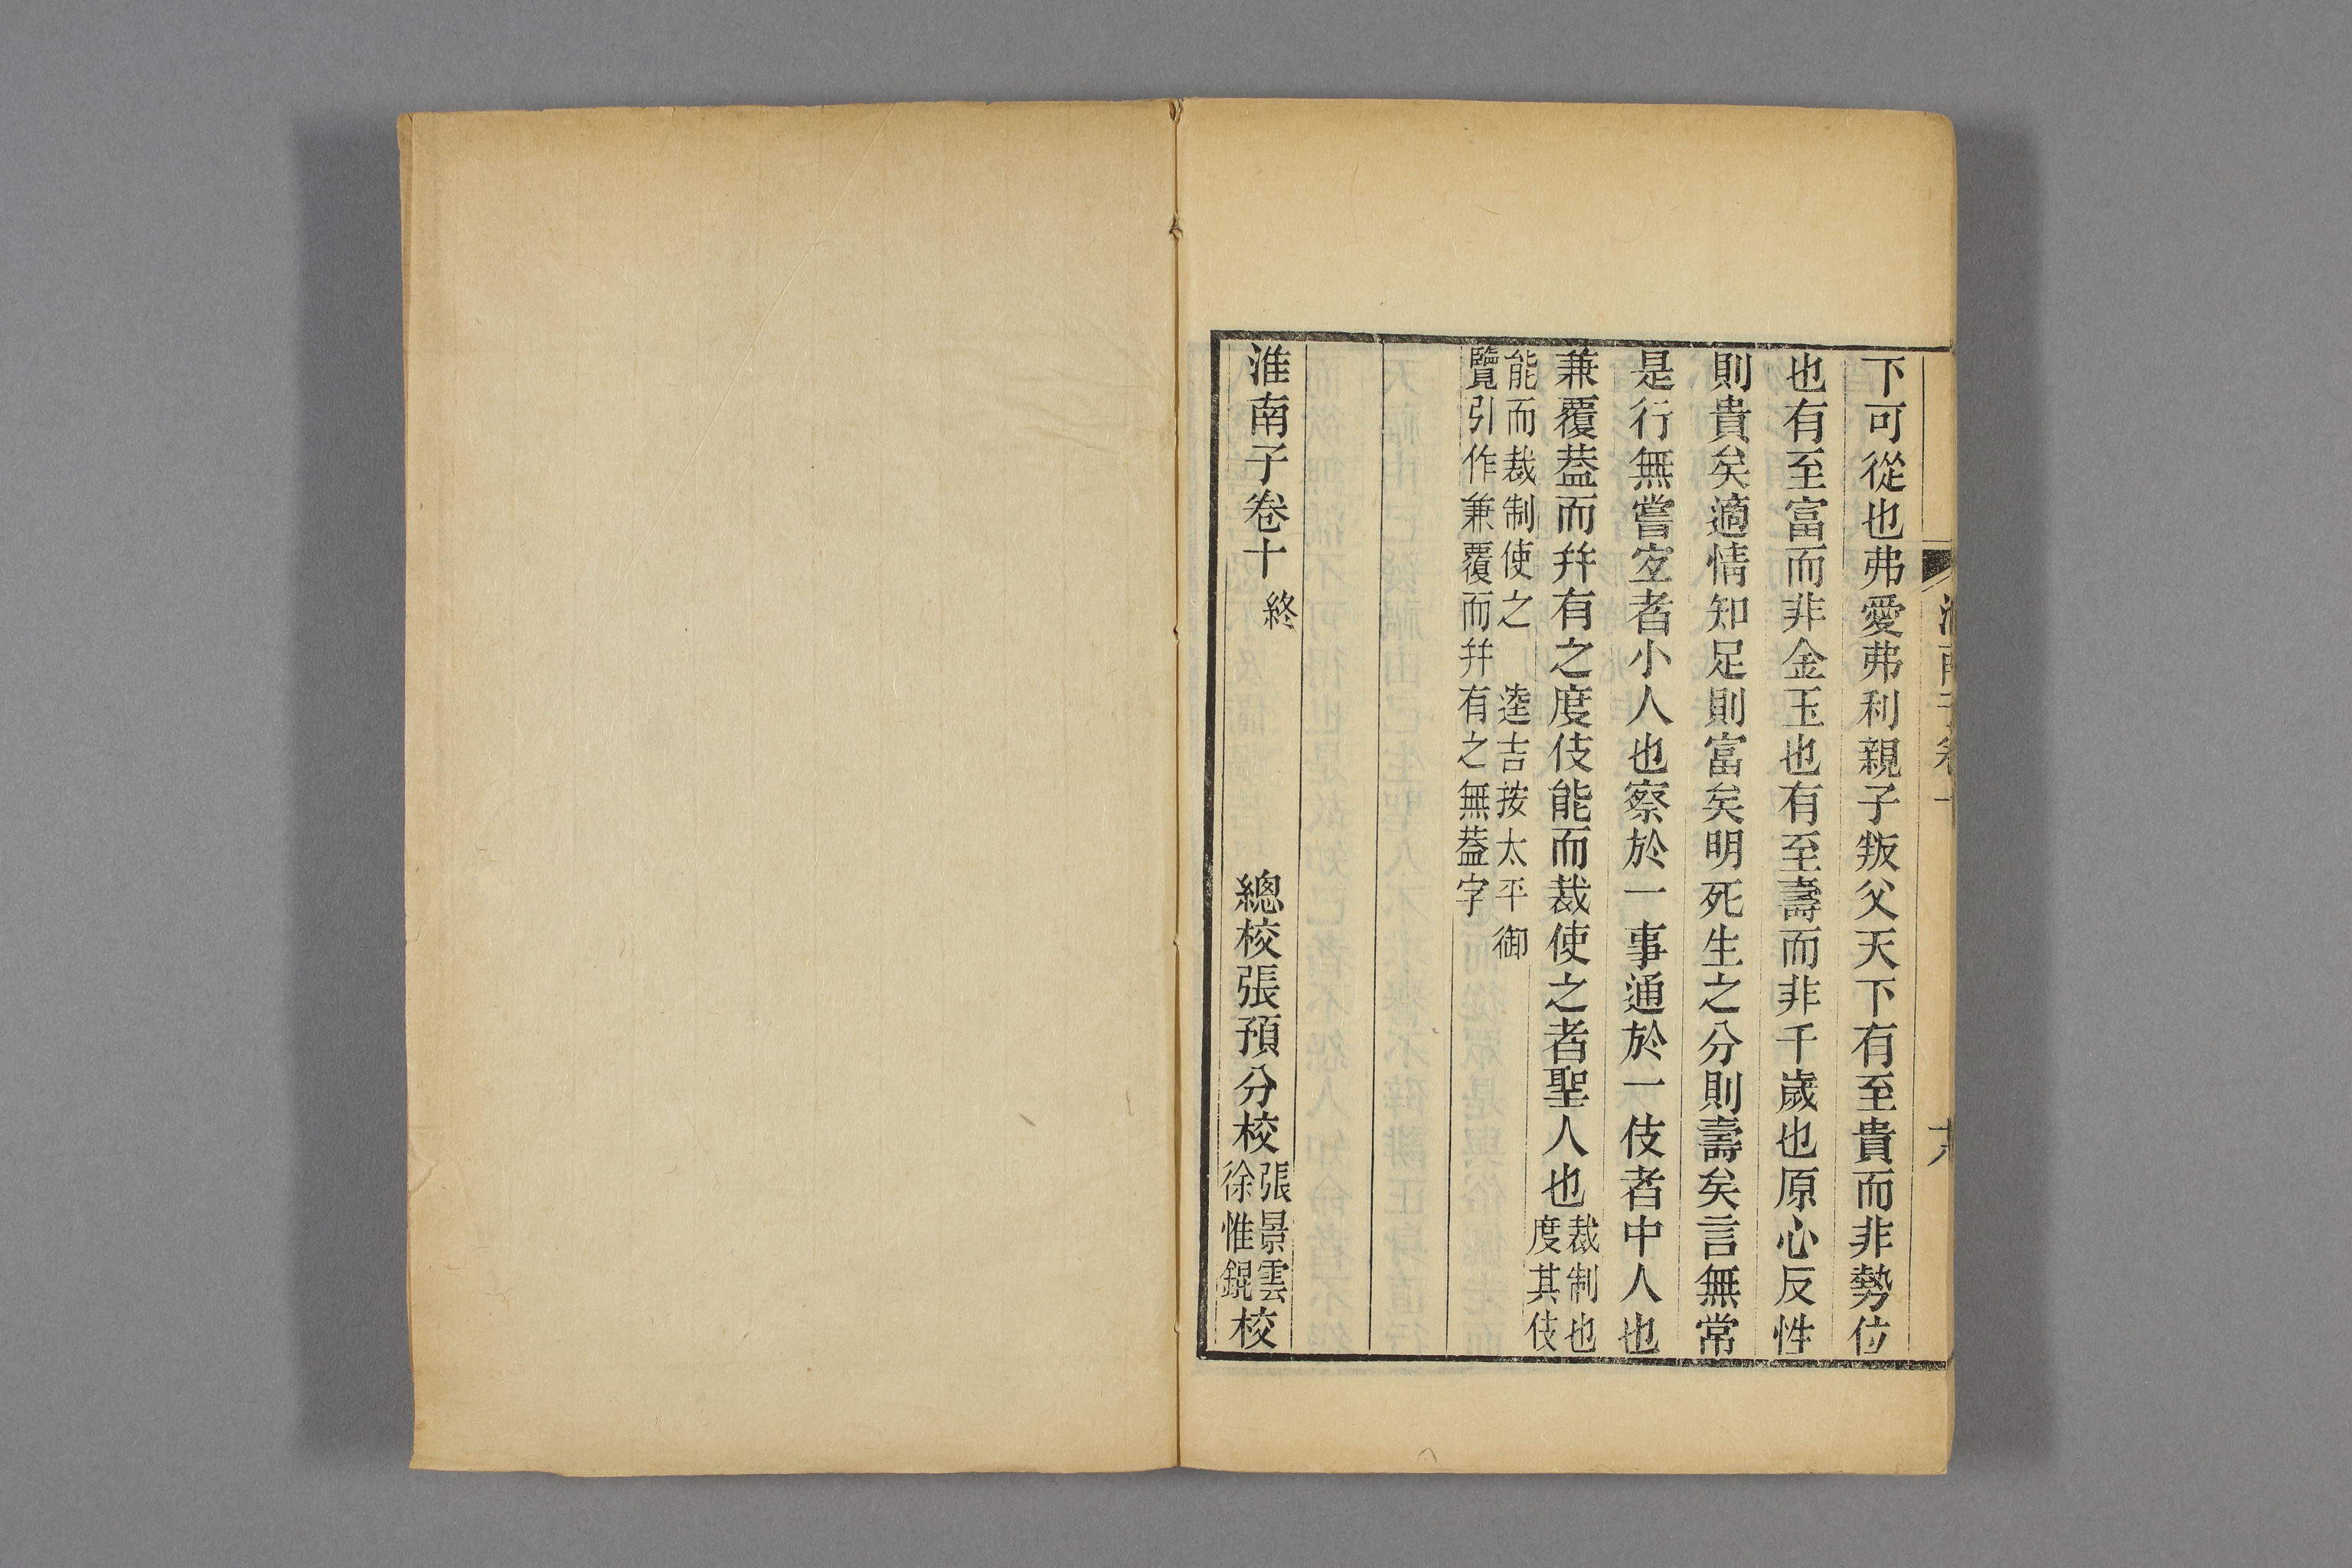 下可從也弗愛弗利親子叛父天下有至貴而非勢位
也有至富而非金玉也有至壽而非千歲也原心反性
則貴矣適情知足則富矣明死生之分則壽矣言無常
是行無嘗宐者小人也察於一事通於一伎者中人也
兼覆葢而并有之度伎能而裁使之者聖人也裁制也度其伎
能而裁制使之 逵吉按太平御
覽引作兼覆而并有之無葢字
淮南子卷十 終 總校張預分校張景雲徐惟錕校